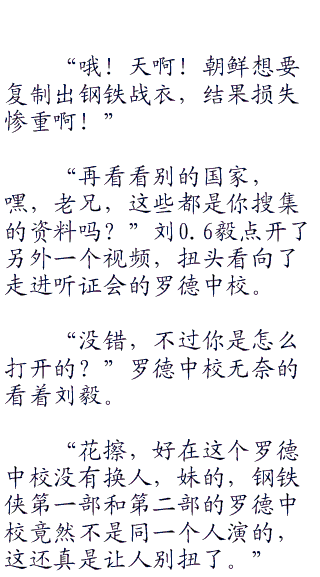 “哦！天啊！朝鲜想要
复制出钢铁战衣，结果损失
惨重啊！”
“再看看别的国家，
嘿，老兄，这些都是你搜集
的资料吗？”刘0.6毅点开了
另外一个视频，扭头看向了
走进听证会的罗德中校。
“没错，不过你是怎么
打开的？”罗德中校无奈的
看着刘毅。
“花擦，好在这个罗德
中校没有换人，妹的，钢铁
侠第一部和第二部的罗德中
校竟然不是同一个人演的，
这还真是让人别扭了。”